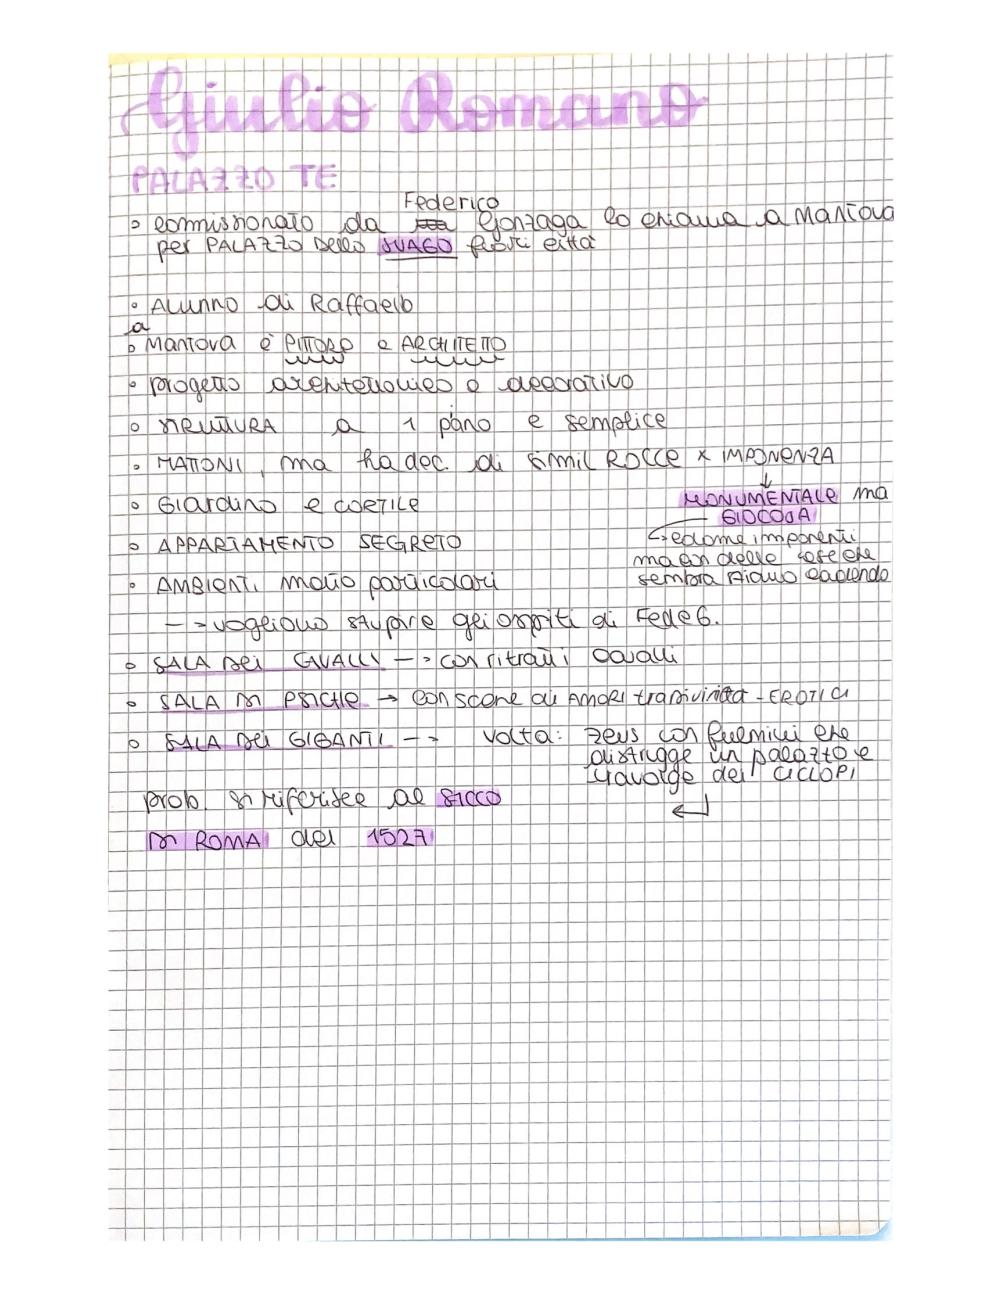 Giulio Romano
PALAZZO TE
Federico
◦ commissionato da Gonzaga lo chiama a Mantova
per PALAZZO Dello SVAGO fuori città
◦ Alunno di Raffaello
a
◦ Mantova è PITTORE e ARCHITETTO
◦ progetto architettonico e decorativo
◦ STRUTTURA a 1 piano e semplice
◦ MATTONI, ma ha dec. di simil ROCCE x IMPONENZA
↓
MONUMENTALE ma
◦ Giardino e CORTILE
GIOCOSA
◦ APPARTAMENTO SEGRETO
↳ colonne imponenti
ma con delle cose che
sembra stiano cadendo
◦ AMBIENTI molto particolari
--> vogliono stupire gli ospiti di Fede G.
◦ SALA DEI CAVALLI --> con ritratti cavalli
◦ SALA DI PSICHE → con scene di AMORI tra divinità - EROTICI
◦ SALA DEI GIGANTI --> volta: Zeus con fulmini che
distrugge un palazzo e
travolge dei CICLOPI
prob. si riferisce al SACCO
DI ROMA del 1527